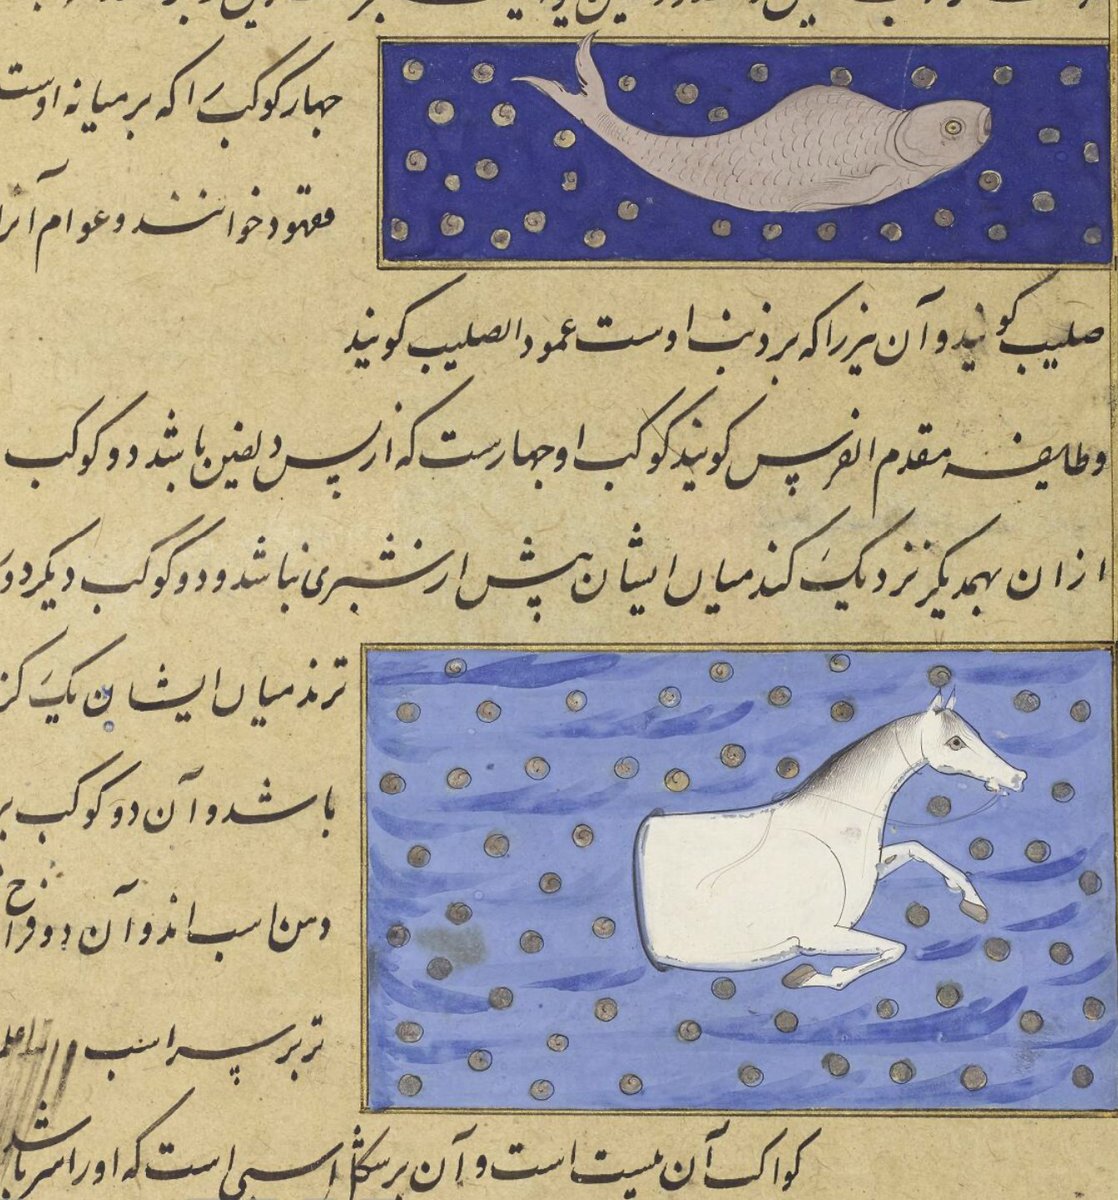 چهار کوکب را که بر میانه اوست
مفقود خوانند و عوام آنرا
صلیب گویند و آن نیز را که بر ذنب اوست عمود الصلیب گویند
و طایفه مقدم الفرس گویند کوکب او چهارست که از پس دلفین باشد دو کوکب
ازان بهمدیگر نزدیک کند میان ایشان بیش از شبری نباشد و دو کوکب دیگر دور
ترند میان ایشان یک گز
باشد و آن دو کوکب بر
اند و آن دو فراخ
تر بر سر اسب
کواکب آن بیست است و آن بر شکل اسبی است که او را سر باشد